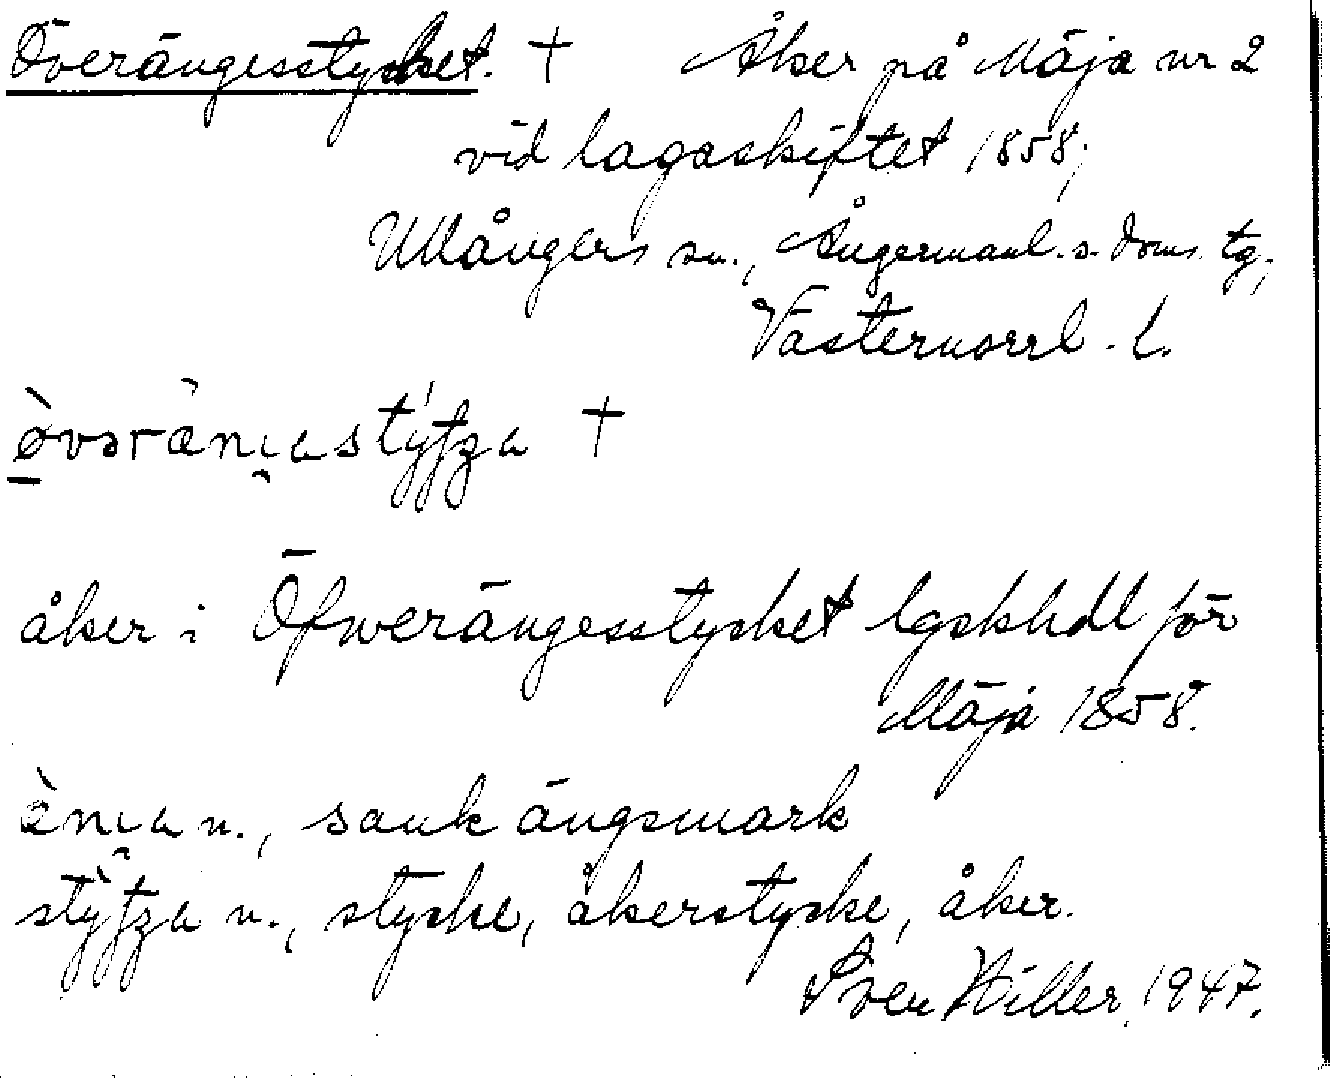 Överängesstycket. † Åker på Mäja nr 2
vid lagaskiftet 1858;
Ullångers sn., Ångermanl. s. doms. tg.,
Västernorrl. l.
åker i Öfwerängesstycket lgskhdl för
Mäja 1858.
n., sank ängsmark
n., stycke, åkerstycke, åker.
Sven Willer, 1947.